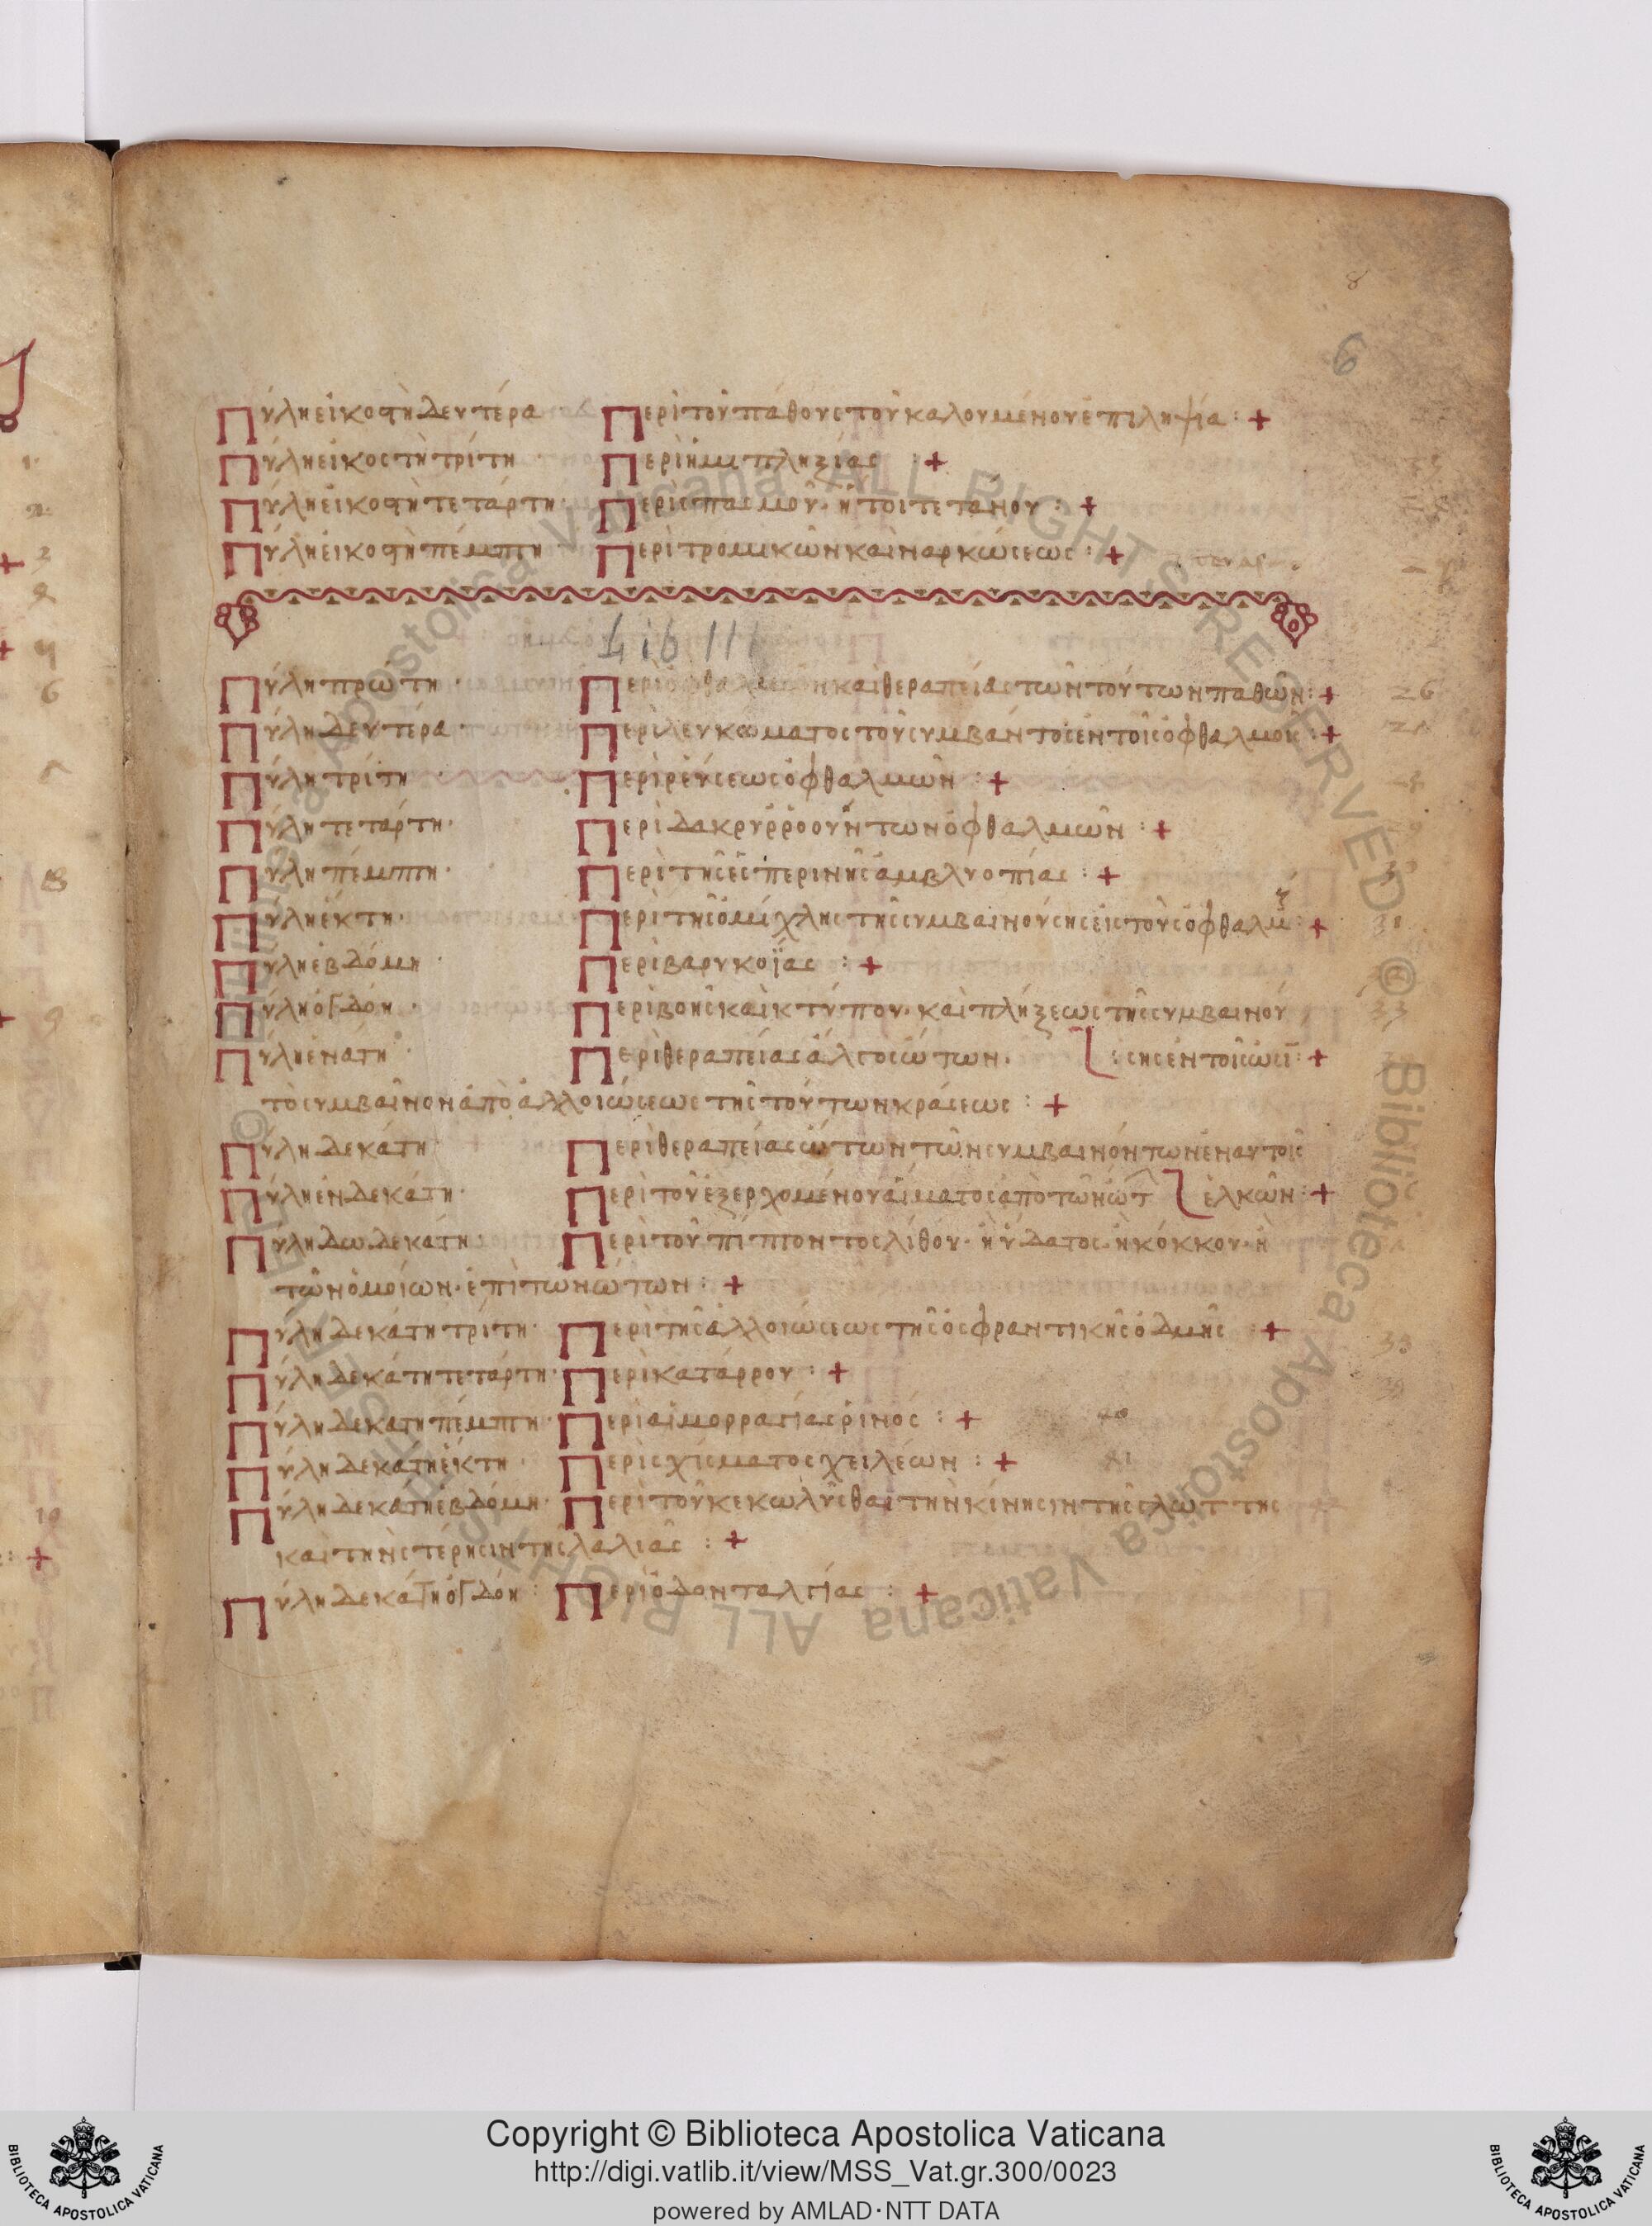 8
6
Πύλη εἰκοστὴ δευτέρα Περὶ τοῦ πάθους τοῦ καλουμένου ἐπιληψία : +
Πύλη εἰκοστὴ τρίτη Περὶ ἡμιπληξίας : +
Πύλη εἰκοστὴ τετάρτη · Περὶ σπασμοῦ · ἤτοι τετάνου : +
Πύλη εἰκοστὴ πέμπτη Περὶ τρομικῶν καὶ ναρκώσεως : +
Lib III
Πύλη πρώτη · Περὶ ὀφθαλμῶν καὶ θεραπείας τῶν τούτων παθῶν : + 26
Πύλη δευτέρα · Περὶ λευκώματος τοῦ συμβάντος ἐν τοῖς ὀφθαλμοῖς : +
Πύλη τρίτη · Περὶ ῥεύσεως ὀφθαλμῶν : +
Πύλη τετάρτη · Περὶ δακρυρρόουντων ὀφθαλμῶν : +
Πύλη πέμπτη · Περὶ τῆς ἑσπερινῆς ἀμβλυοπίας : +
Πύλη ἕκτη · Περὶ τῆς ὀμίχλης τῆς συμβαινούσης εἰς τοὺς ὀφθαλμ : + 31
Πύλη ἑβδόμη · Περὶ βαρυκοΐας : +
Πύλη ὀγδόη · Περὶ βοῆς καὶ κτύπου · καὶ πλήξεως τῆς συμβαινού 33
Πύλη ἐνάτη · Περὶ θεραπείας ἄλγος ὤτων · : σης ἐν τοῖς ὠσί : +
τὸ συμβαῖνον ἀπὸ ἀλλοιώσεως τῆς τούτων κράσεως : +
Πύλη δεκάτη Περὶ θεραπείας ὤτων τῶν συμβαινόντων ἐν αυτοῖς
Πύλη ἑνδεκάτη · Περὶ τοῦ ἐξερχομένου αἵματος ἀπὸ τῶν ὤτ ἑλκῶν : +
Πύλη δωδεκάτη · Περὶ τοῦ πίπτοντος λίθου · ἢ ὕδατος · ἢ κόκκου · ἢ
τῶν ὁμοίων · ἐπὶ τῶν ὤτων : +
Πύλη δεκάτη τρίτη · Περὶ τῆς ἀλλοιώσεως τῆς ὀσφραντικῆς ὀδμῆς : +
Πύλη δεκάτη τετάρτη · Περὶ κατάρρου : +
Πύλη δεκάτη πέμπτη · Περὶ αἱμορραγίας ῥινός : + 40
Πύλη δεκάτη ἕκτη · Περὶ σχίσματος χειλέων : + 41
Πύλη δεκάτη ἑβδόμη · Περὶ τοῦ κεκωλῦσθαι τὴν κίνησιν τῆς γλώττης
καὶ τὴν στέρησιν τῆς λαλιᾶς : +
Πύλη δεκάτη ὀγδόη : Περὶ ὀδονταλγίας : +
Copyright © Biblioteca Apostolica Vaticana
http://digi.vatlib.it/view/MSS_Vat.gr.300/0023
powered by AMLAD·NTT DATA
BIBLIOTECA APOSTOLICA VATICANA
BIBLIOTECA APOSTOLICA VATICANA